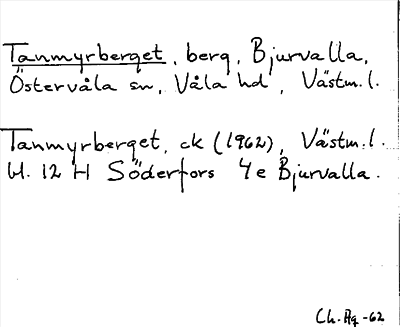 Tanmyrberget, berg, Bjurvalla,
Östervåla sn, Våla hd, Västm.l.
Tanmyrberget, ek (1962), Västm.l.
bl. 12 H Söderfors 4e Bjurvalla.
Ch. Ag -62